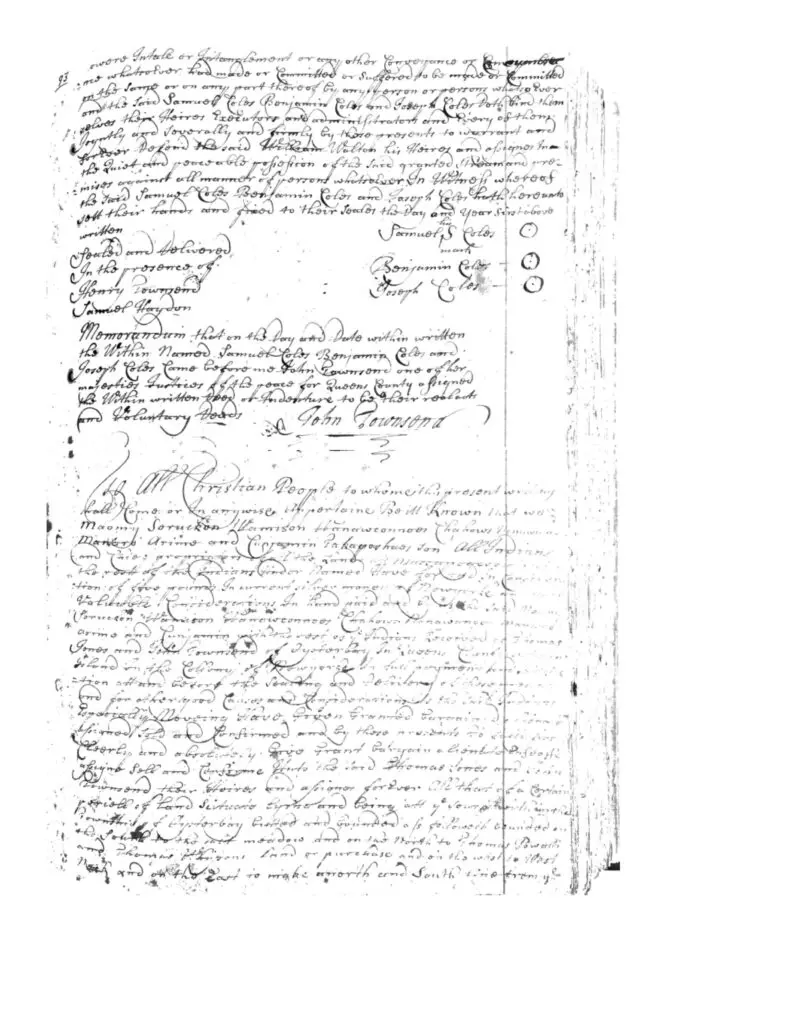 93
were Intale or Intanglement or any other Conveyance or Conveyances
me whatsoever had made or Committed or Suffered to be made or Committed
on the Same or on any part thereof by any person or persons whatsoever
and the Said Samuel Coles Benjamin Coles and Joseph Coles doth bind them
selves their Heires Executors and administrators and Every of them
Joyntly and Severally and firmly by these presents to warrant and
forever Defend the said William Walton his Heires and asignes In
the Quiet and peaceable posession of the Said granted Streame and pre=
=mises against all manner of persons whatsoever In Witness whereof
the Said Samuel Coles Benjamin Coles and Joseph Coles hath hereunto
sett their hands and fixed to their Seales the Day and Year first above
written
his
Samuel S Coles
mark
Sealed and Delivered
In the presence of
Benjamin Coles
Henry Townsend
Joseph Coles
Samuel Haydon
Memorandum that on the Day and Date within written
the Within Named Samuel Coles Benjamin Coles and
Joseph Coles Came before me John Townsend one of her
majesties Justices of the peace for Queens County asigned
the Within written Deed or Indenture to be their real act
and Voluntary Deeds
John Townsend
To All Christian People to whome this present writing
shall Come or In anywise appertaine Be it Known that we
Maomy Soruckon Wamison Hanawconnoes Chahows
Arime and Cunjamin Takaposhaes Son All Indians
and proprietors of the Land
the rest of the Indians under Named have for
tion of five pounds In current silver money of
Valuable Considerations In hand paid
Soruckon Wamison Hanawconnoes Chahows
Arime and Cunjamin with the rest of ye Indians Received of Thomas
Jones and John Townsend of Oysterbay In Queens County
Island In the Collony of Newyorke In full
tion att and before the Sealing and Delivery of these
and for other good Causes and Considerations us the Said Indians
Especially Moveing Have Given Granted Bargained
asigned Sold and Confirmed and by these presents
Clearly and absolutely Give Grant bargain alienate Enfeoffe
asigne Sell and Confirme Unto the Said Thomas Jones and John
Townsend their Heires and asignes forever All that of a Certain
percell of Land Situate Lying and being att ye South
township of Oysterbay butted and bounded as followeth bounded on
the South to the Salt meadow and on the North to Thomas Powells
and Thomas Land or purchase and on the west to West
Neck and on the East to make a north and South line from ye